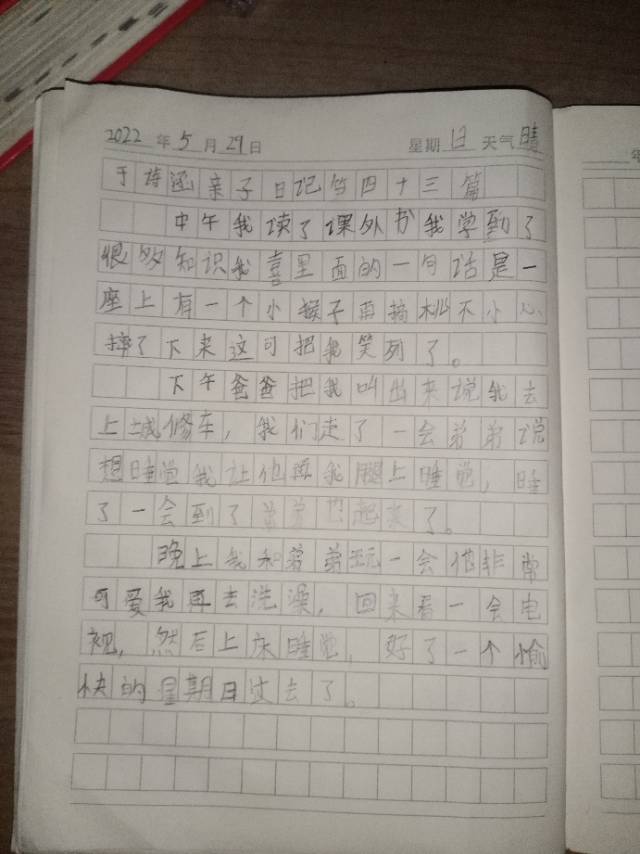 2022年5月29日 星期日 天气晴
于诗涵亲子日记第四十三篇
中午我读了课外书我学到了
很多知识我喜里面的一句话是一
座上有一个小猴子再摘桃不小心
摔了下来这可把我笑列了。
下午爸爸把我叫出来说我去
上城修车，我们走了一会弟弟说
想睡觉我让他再我腿上睡觉，睡
了一会到了弟弟起来了。
晚上我和弟弟玩一会他非常
可爱我再去洗澡，回来看一会电
视，然后上床睡觉，好了一个愉
快的星期日过去了。
年